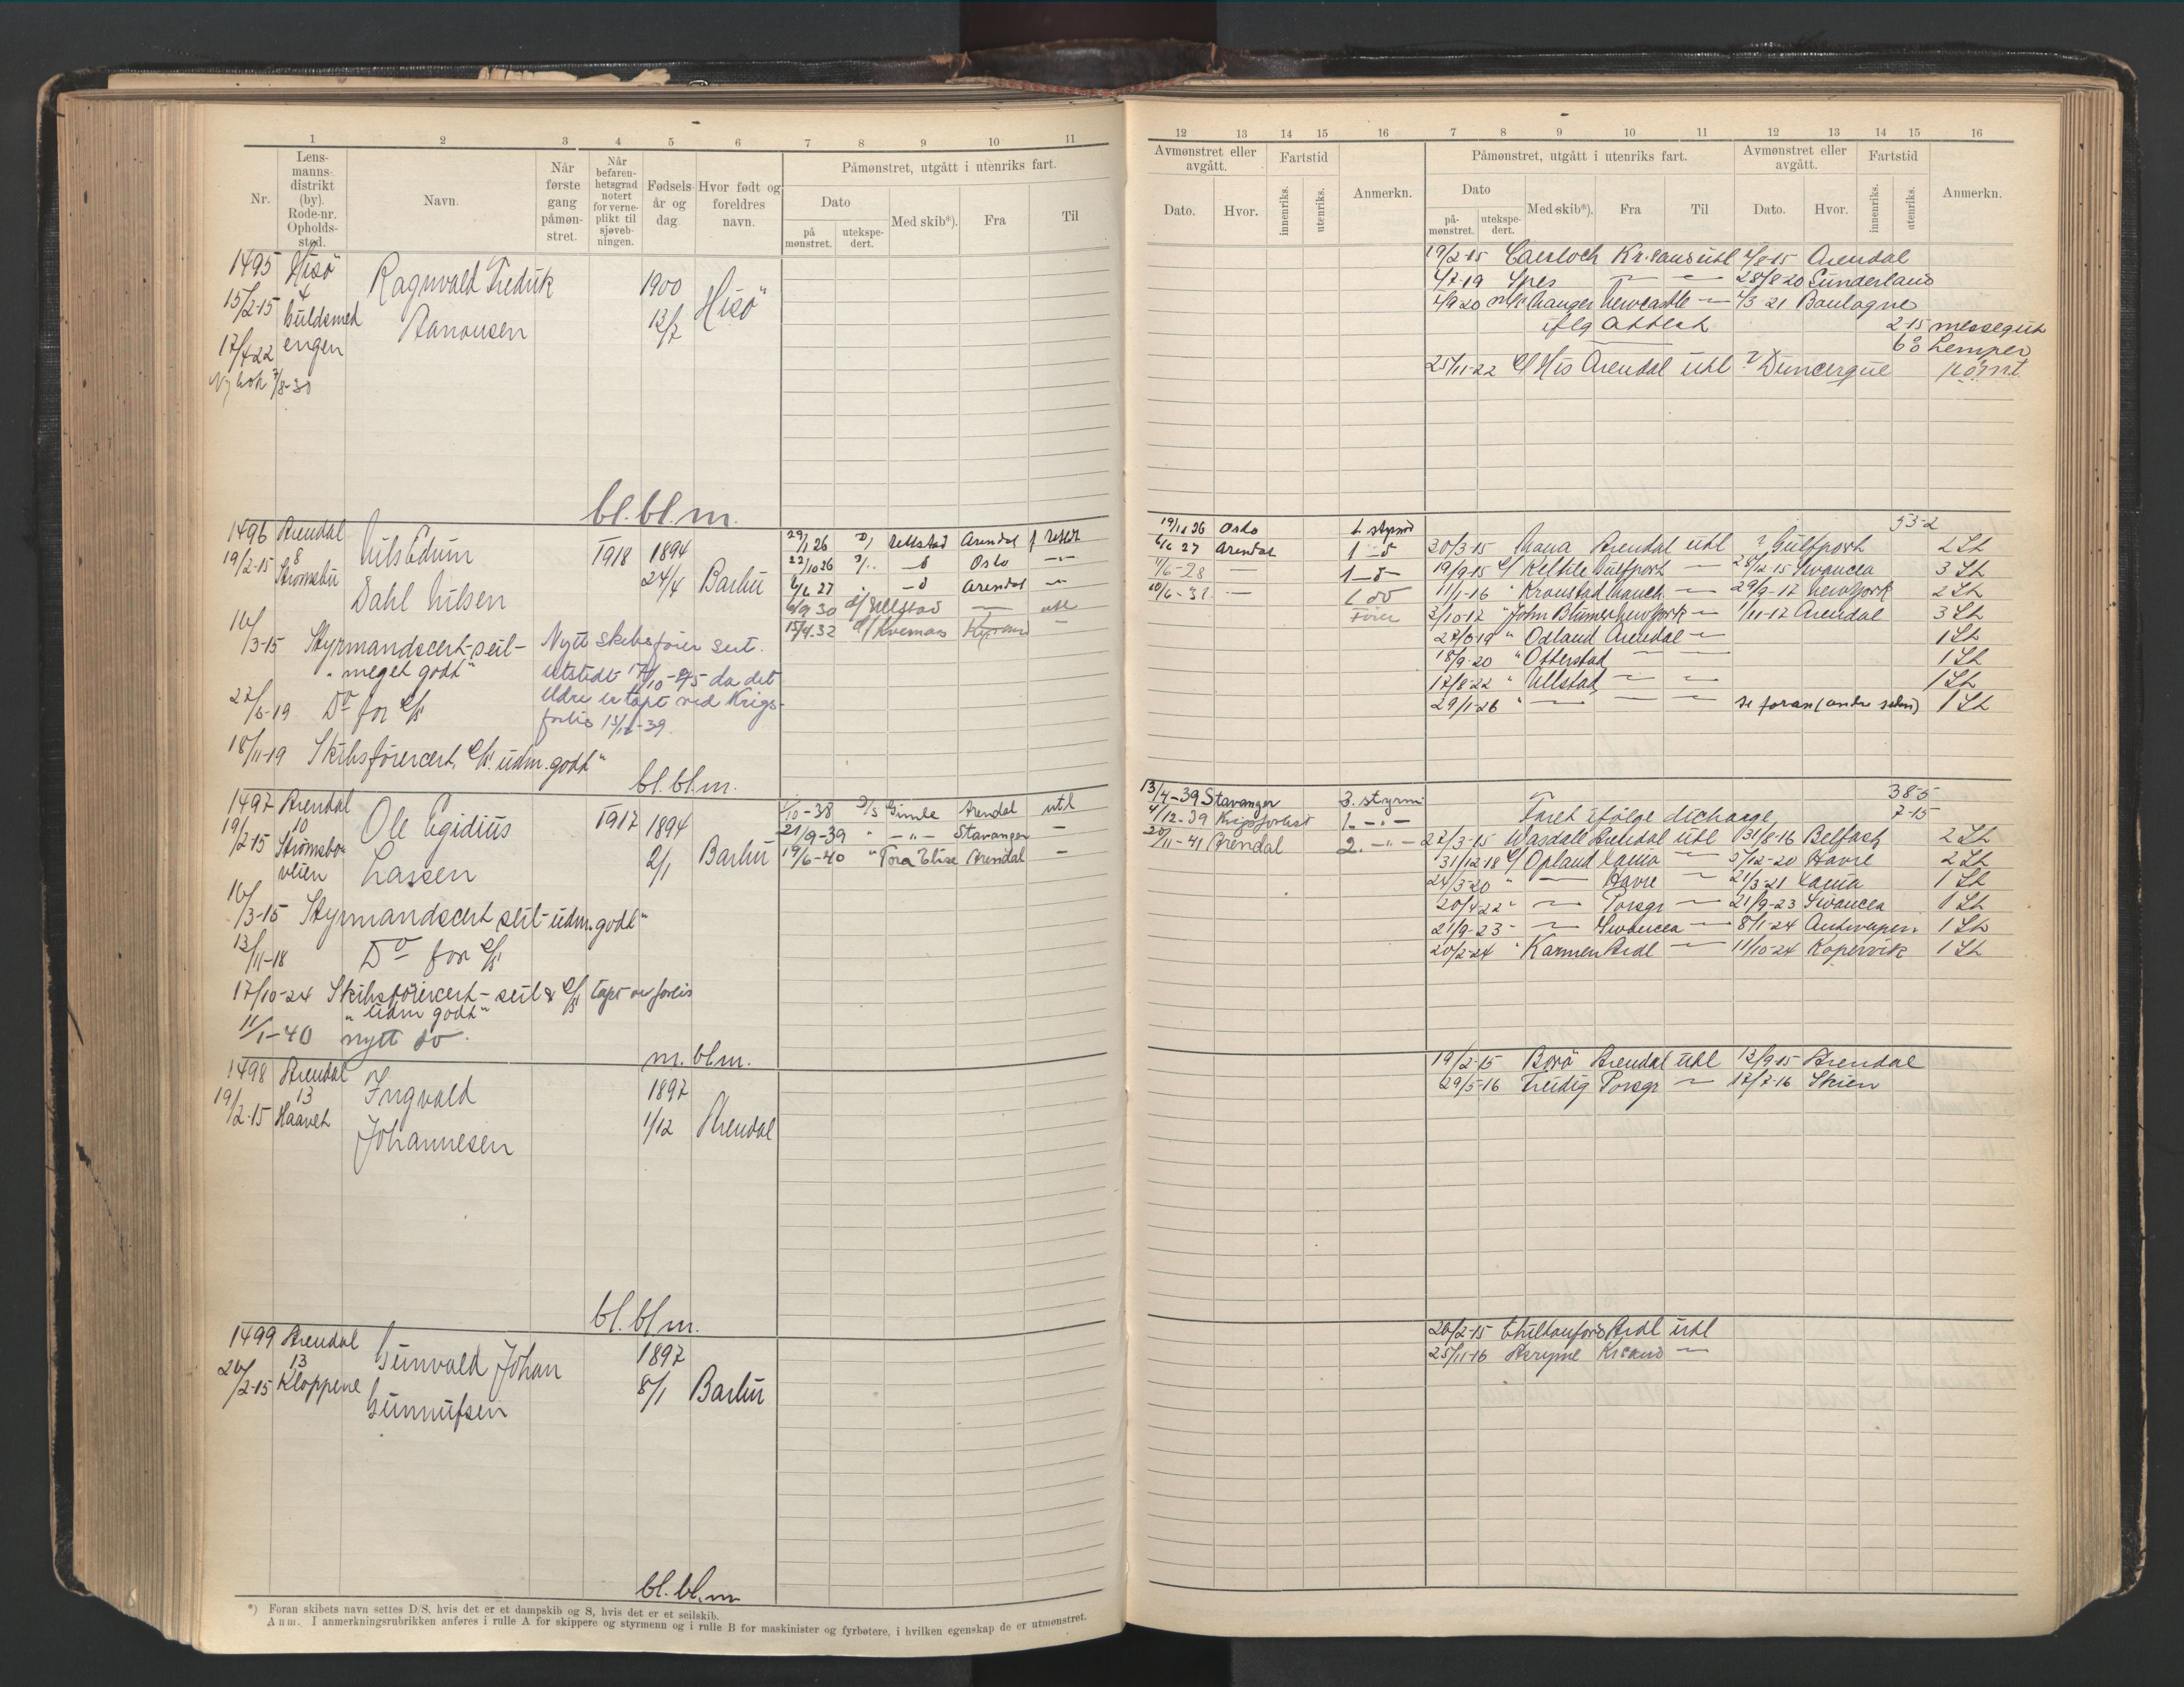 1 2 3 4 5 6 7 8 9 10 11
Nr.
Lens-
manns-
distrikt
(by).
Rode-nr.
Opholds-
sted.
Navn.
Når
første
gang
påmøn-
stret.
Når
befaren-
hetsgrad
notert
for verne-
plikt til
sjøveb-
ningen.
Fødsels-
år og
dag.
Hvor født og
foreldres
navn.
Påmønstret, utgått i utenriks fart.
Dato
på
mønstret.
utekspe-
dert.
Med skib*).
Fra
Til
1495 Hisö
4
15/2-15 Guldsmed
engen
17/4 22
Ny bok 7/8-30
Ragnvald Fredrik
Aanonsen
1900
13/7
Hisö
bl. bl. m.
1496 Arendal
19/2-15 8
Strömsbu
Nils Edvin
Dahl Nilsen
1918 1894
24/4 Barbu
29/1 26 D/ Ullstad Arendal
22/10 26 Oslo
6/6 27 Arendal
6/9 30 Ullstad utl
15/9-32
16/3-15 Styrmandscert-seil-
"meget godt"
27/6-19 Do for D/S
18/11-19 Skibsförercert. D/S. udm. godt"
Nytt skibsfører sert.
utstedt da det
eldre er tapt ved Krigs-
forlis
bl. bl. m.
1497 Arendal
19/2-15 10
Strömsbo-
veien
Ole Egidius
Lassen
1917 1894
2/1 Barbu
1/10-38 D/S Gimle Arendal utl
21/9-39 " -"- Stavanger -
19/6-40 "Tora Elise Arendal -
16/3-15 Styrmandscert seil-udm. godt"
13/11-18 Do for D/S
17/10-24 Skibsförercert-seil & D/S tapt ve forlis
"udm godt"
11/1-40 nytt do.
m. bl m.
1498 Arendal
19/2-15 13
Haavet
Ingvald
Johannesen
1897
1/12 Arendal
bl. bl m.
1499 Arendal
20/2-15 13
Kloppene
Gunvald Johan
Gunnufsen
1897
8/1 Barbu
bl. bl. m
*) Foran skibets navn settes D/S, hvis det er et dampskib og S, hvis det er et seilskib.
Anm. I anmerkningsrubrikken anføres i rulle A for skippere og styrmenn og i rulle B for maskinister og fyrbøtere, i hvilken egenskap de er utmønstret.
12 13 14 15 16 7 8 9 10 11 12 13 14 15 16
Avmønstret eller
avgått.
Dato.
Hvor.
Fartstid
innenriks.
utenriks.
Anmerkn.
Påmønstret, utgått i utenriks fart.
Dato
på-
mønstret.
utekspe-
dert.
Med skib*).
Fra
Til
Avmønstret eller
avgått.
Dato.
Hvor.
Fartstid
innenriks.
utenriks.
Anmerkn.
19/2-15 Caerloch Kr.sand utl 4/8-15 Arendal
4/7-19 Spes — — 28/8-20 Sunderland
4/9 20 Newcastle — 4/3 21 Boulogne
iflg attest 2-15 messegut
Lemper
25/11-22 D/ His Arendal utl ? Duncerque römt.
19/11 26 Oslo 1. styrm
6/6 27 Arendal
7/6-28 —
10/6-32 — Förer
53-2
20/3-15 Mana Arendal utl ? Gulfport 2 St
19/9-15 Gulfport — 28/12-15 Swancea 3 St
11/1-16 " Kronstad — 29/9-17 New York 2 St
3/10-17 "John Blumer New York — 1/11-17 Arendal 3 St
27/6 19 " Opland Arendal — 1 St
18/9-20 "Otterstad — — 1 St
17/8-22 "Ullstad — — 1 St
29/1-26 " — — — se foran (andre siden) 1 St
13/4-39 Stavanger 3. styrm
4/12-39 Krigsforlist 1. -"-
20/11-41 Arendal 2. -"-
38-5
Faret ifölge discharge 7-15
27/3-15 Wasdale Arendal utl 31/8-16 Belfast 2 St
31/12-18 D/ Opland — 5/12-20 Havre 2 St
24/3-20 " — Havre — 21/3-21 1 St
20/4-22 " — Porsgr — 21/9-23 Swancea 1 St
21/9-23 - — Swancea — 8/1-24 Antwerpen 1 St
20/2-24 " Karmen Ardl — 11/10-24 Kopervik 1 St
19/2-15 Borö Arendal utl 12/9-15 Arendal
29/5-16 Freidig Porsgr — 17/7-16 Skien
20/2-15 Ardl utl
25/11-16 Krsand —